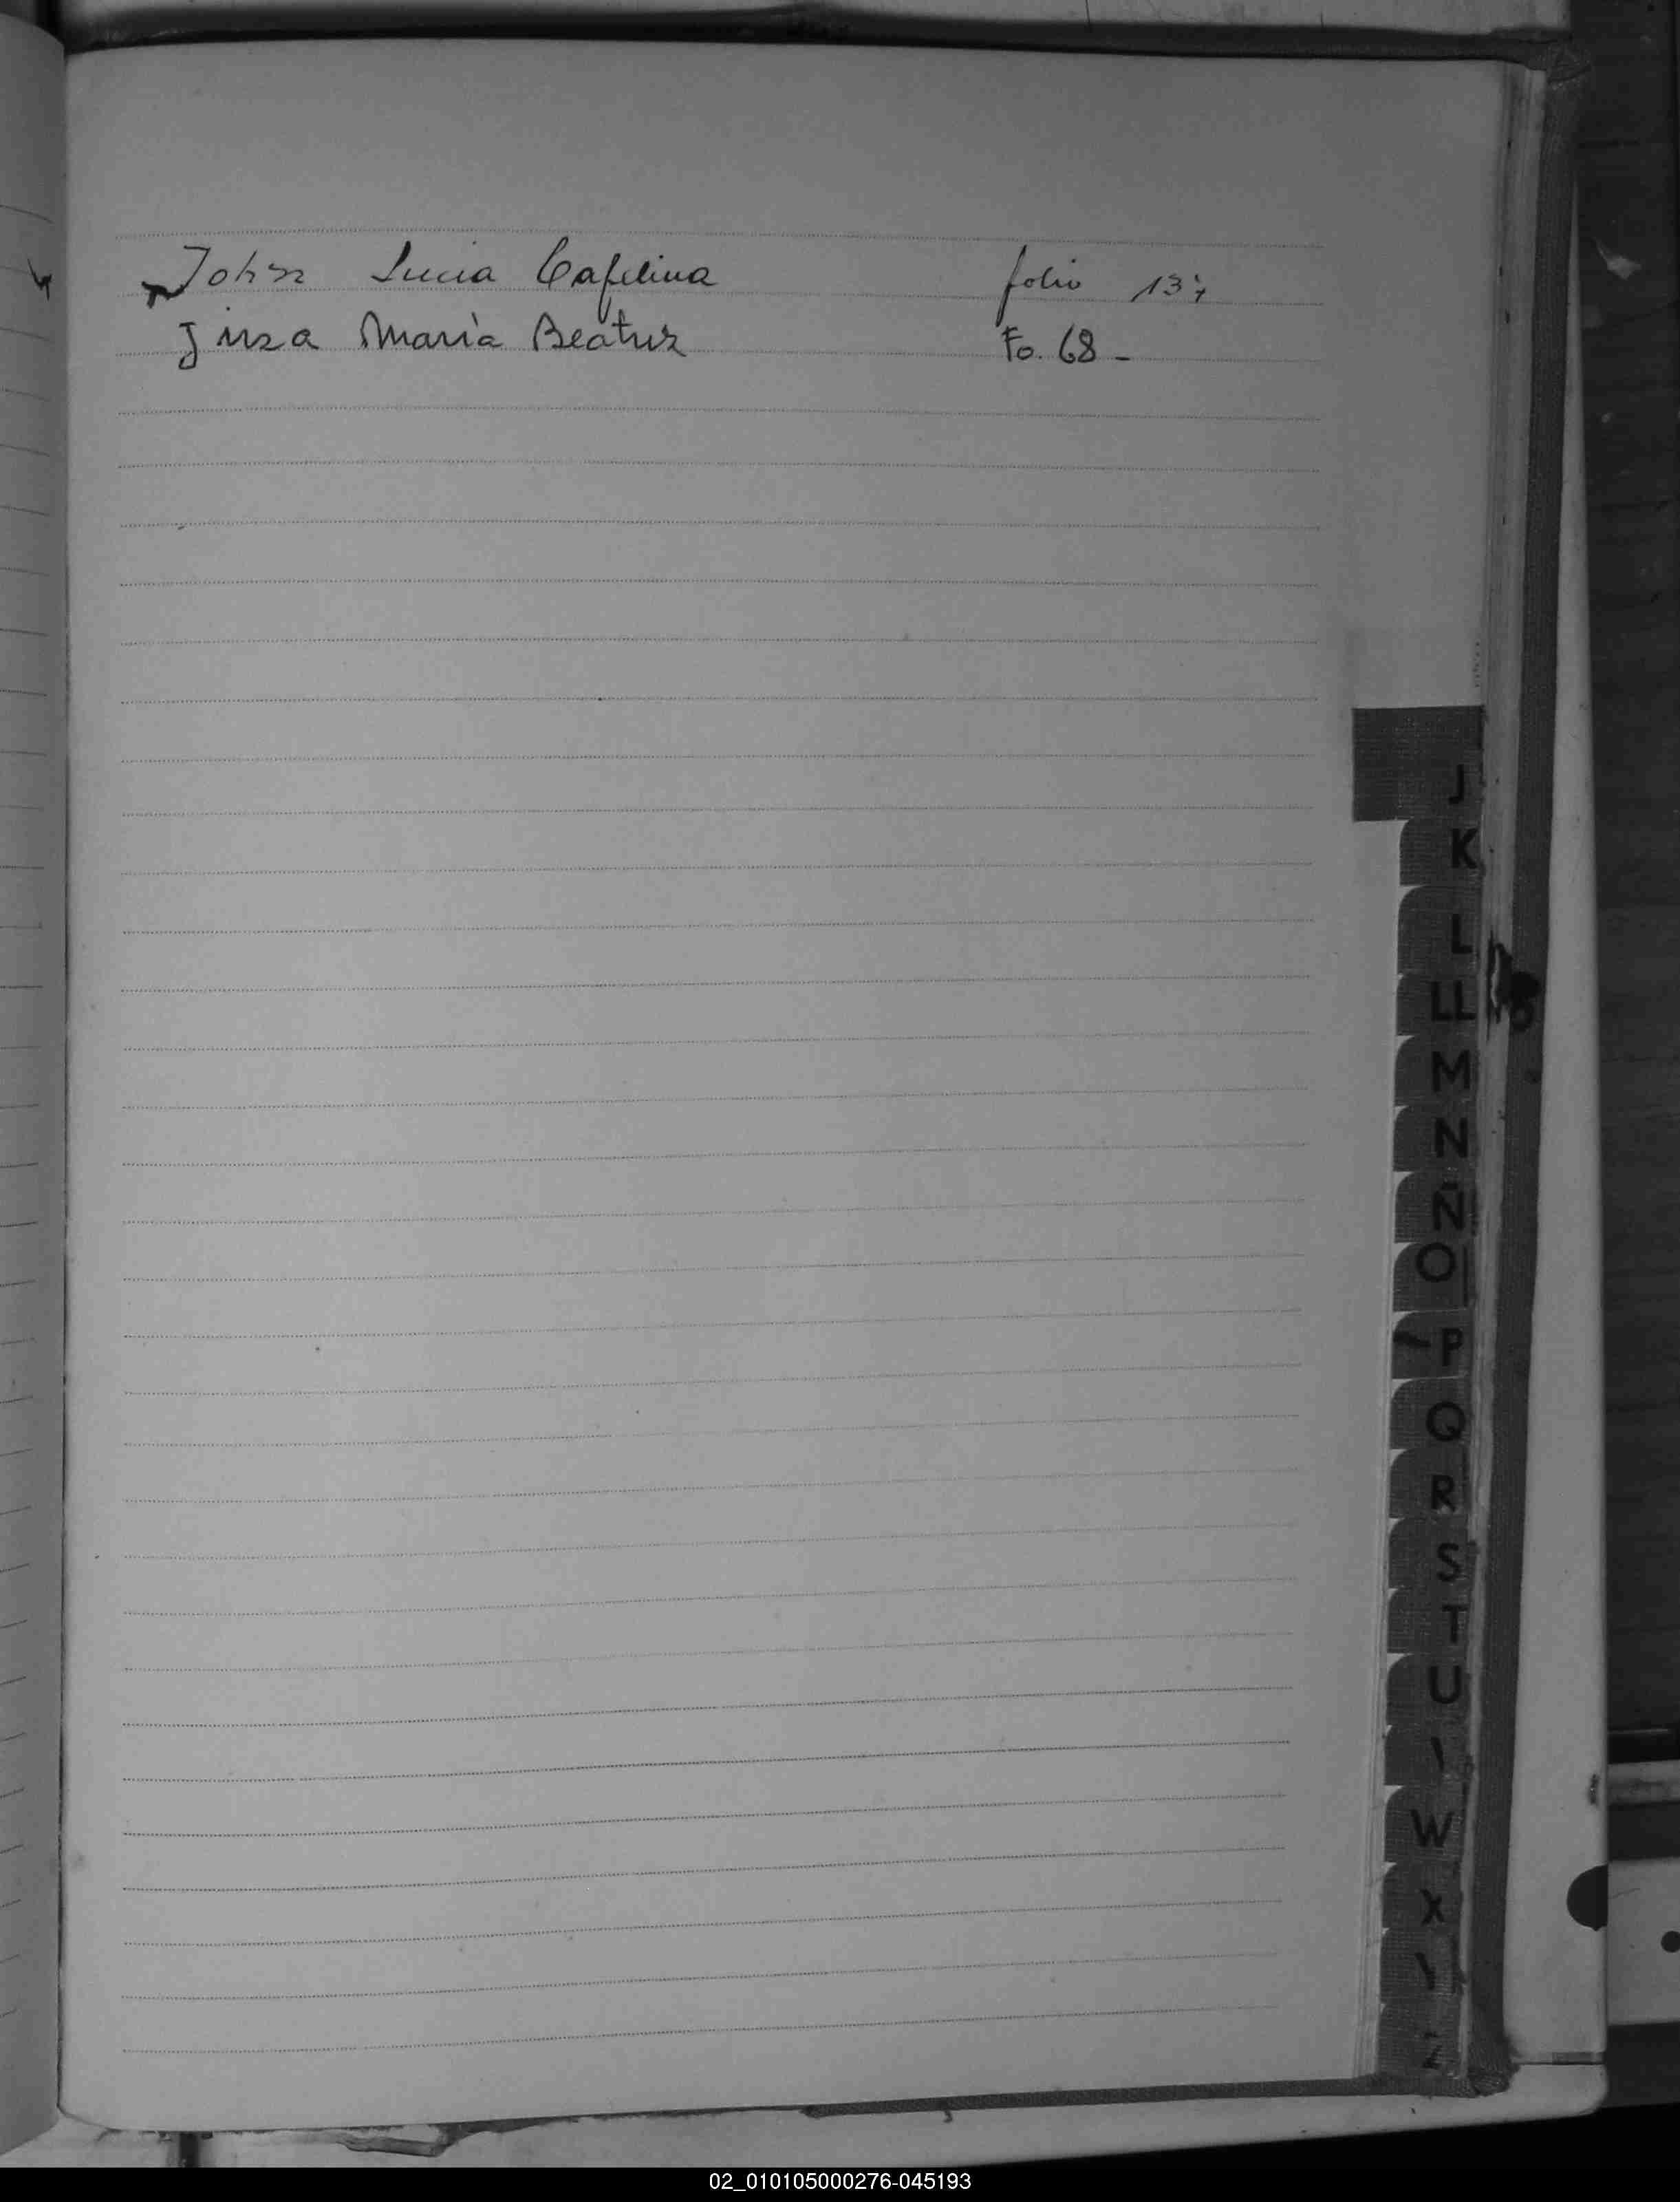 John Lucia Cafelina folio 137
Jinza María Beatriz Fo. 68 -
J
K
L
LL
M
N
Ñ
O
P
Q
R
S
T
U
W
X
Z
02_010105000276-045193